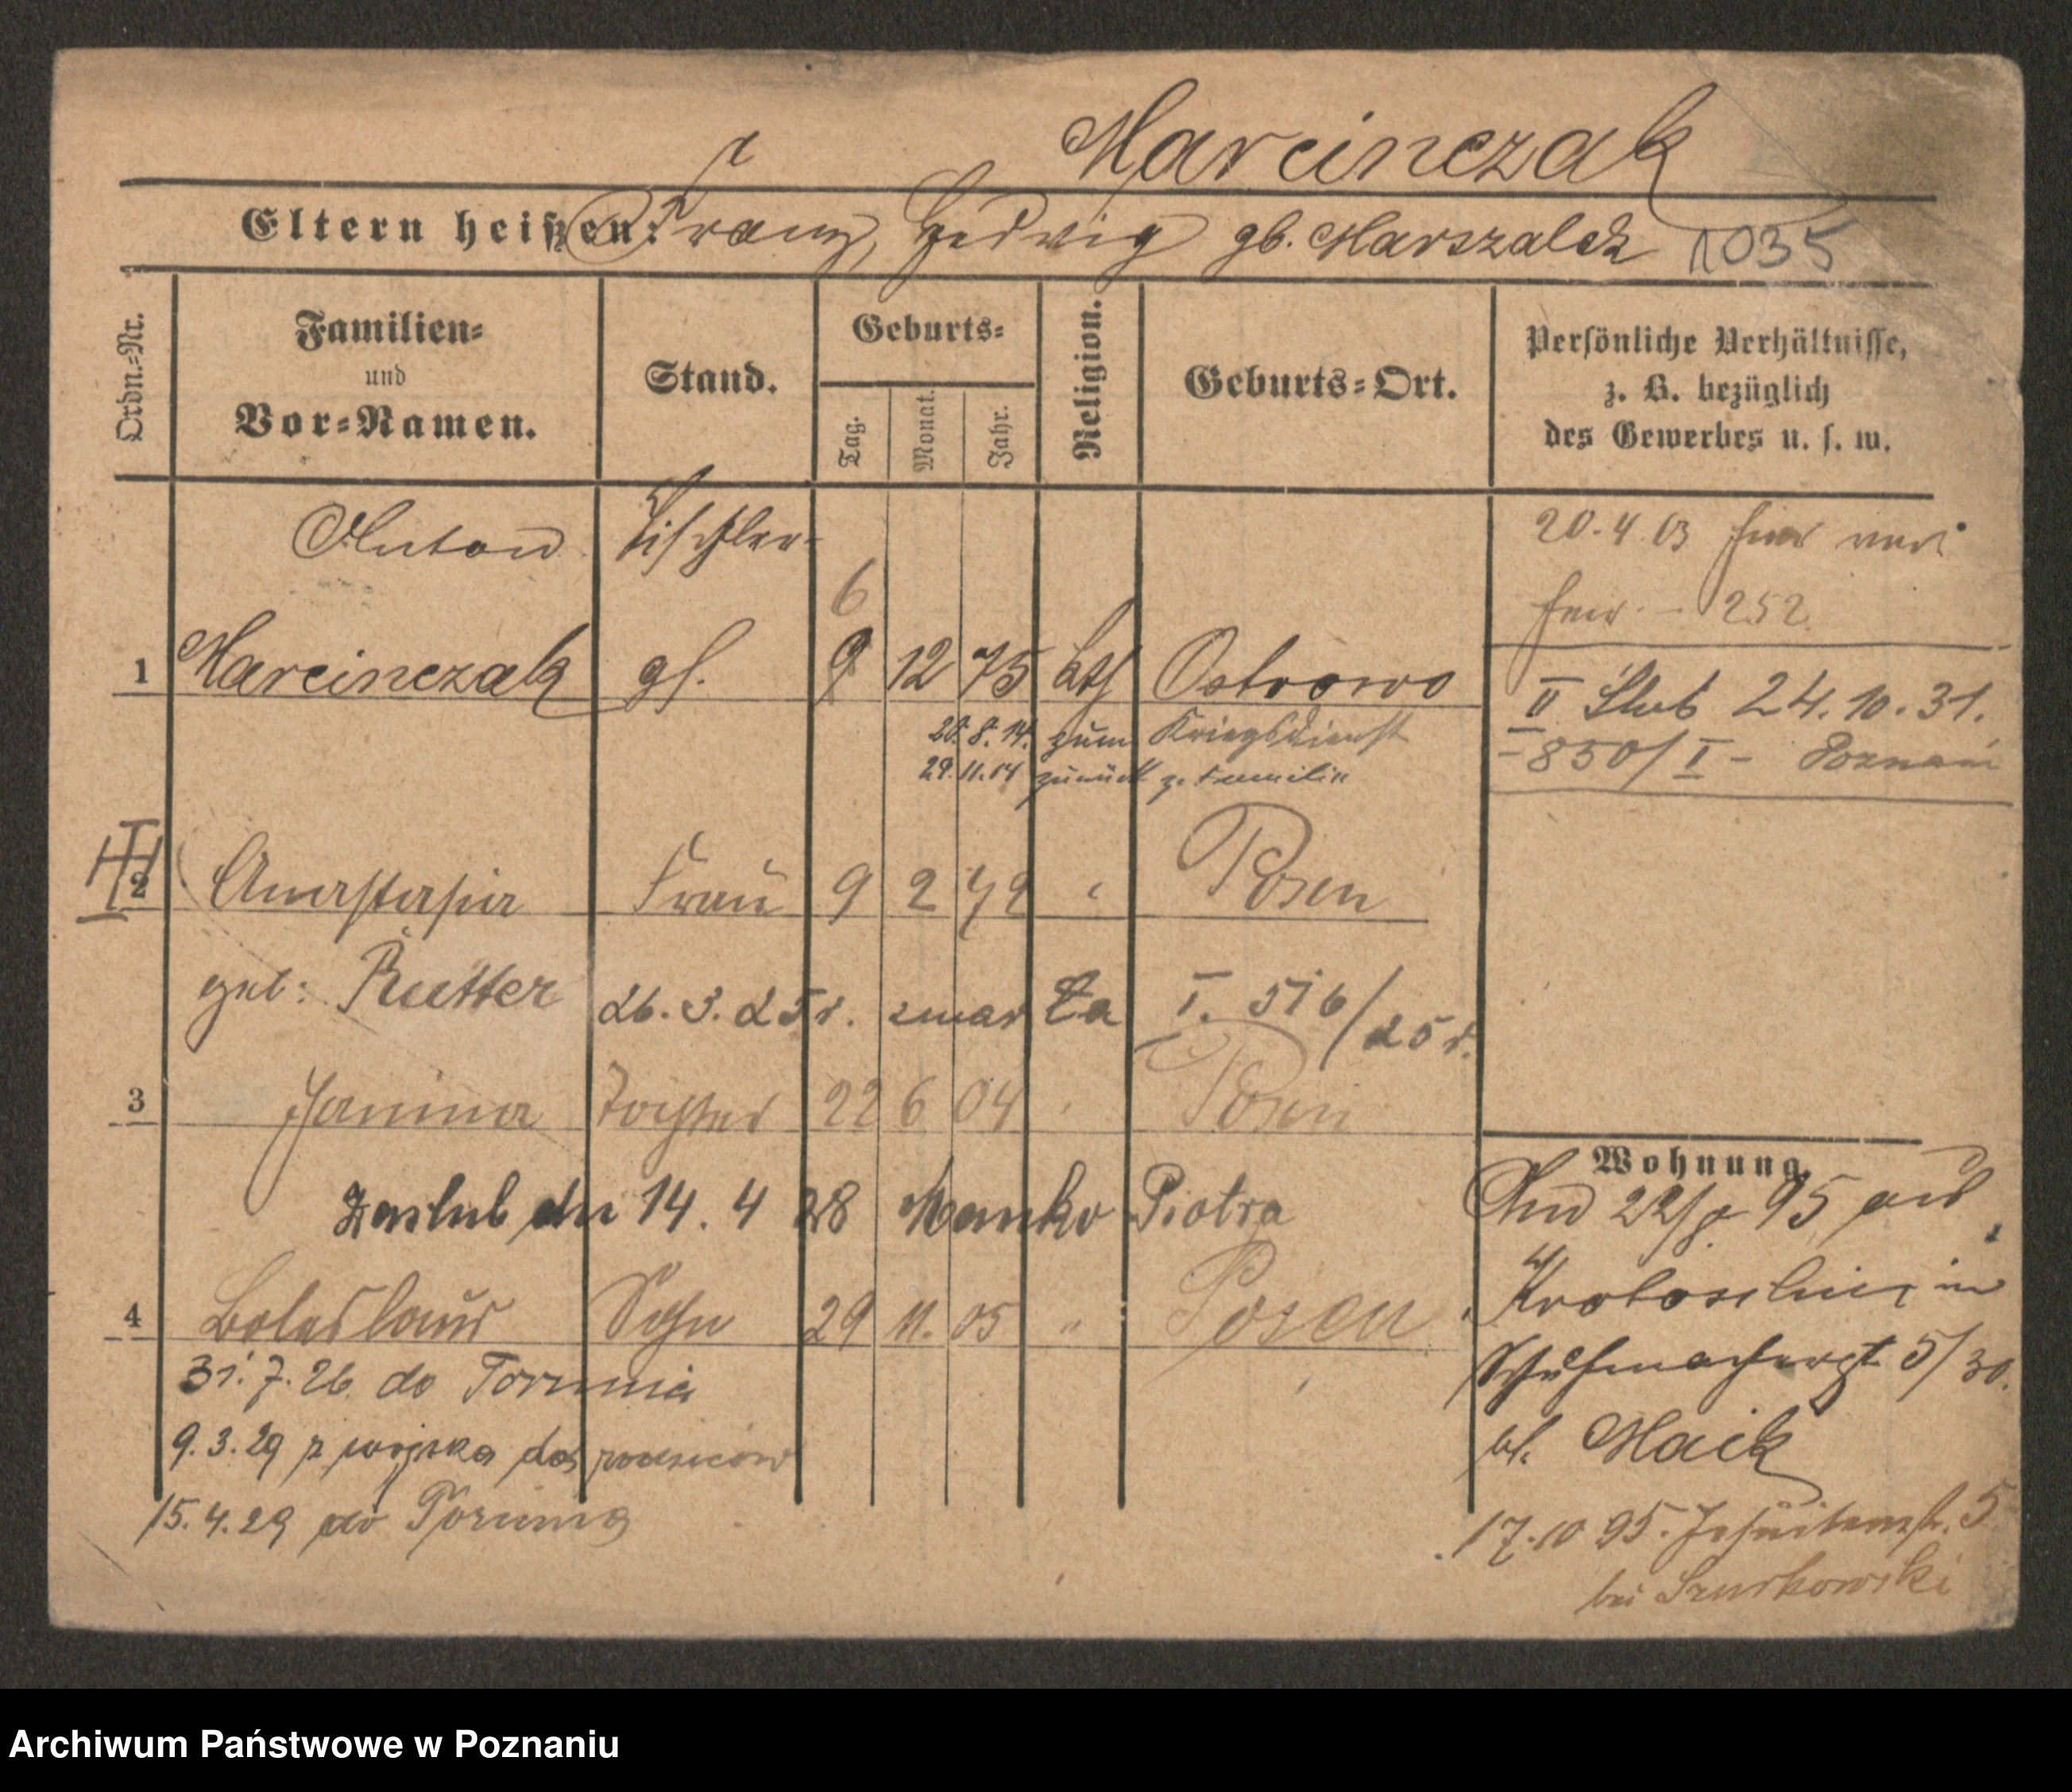 Marcinczak
Eltern heißen: Franz, Hedwig gb. Marszalek 1035
Ordn.-Nr.
Familien-
und
Vor-Namen.
Stand.
Geburts-
Tag.
Monat.
Jahr.
Religion.
Geburts-Ort.
Persönliche Verhältnisse,
z. B. bezüglich
des Gewerbes u. s. w.
Anton Tischler-
6
1 Marcinczak gs. 9 12 75 kth Ostrowo
20.8.14. zum Kriegsdienst
29.11.14 zurück z. Familie
20.4.03 hier
252
II Ślub 24.10.31.
-850/I- Poznań
2 Anastasia Frau 9 2 72 " Posen
geb: Rutter 26.3.25 r. zmar ła I. 516/25 r.
3 Janina Tochter 22 6 04 " Posen
Zaslub dn 14.4 28 Manko Piotra
4 Boleslaus Sohn 29 11. 05 " Posen
31.7.26. do Torunia
9.3.29 z wojska do rodziców
15.4.29 do Torunia
Wohnung.
95 aus
Krotoschin in
Schuhmacherstr 5/30.
bl. Maik
17.10 95. Jesuitenstr. 5
bei Szurkowski
Archiwum Państwowe w Poznaniu